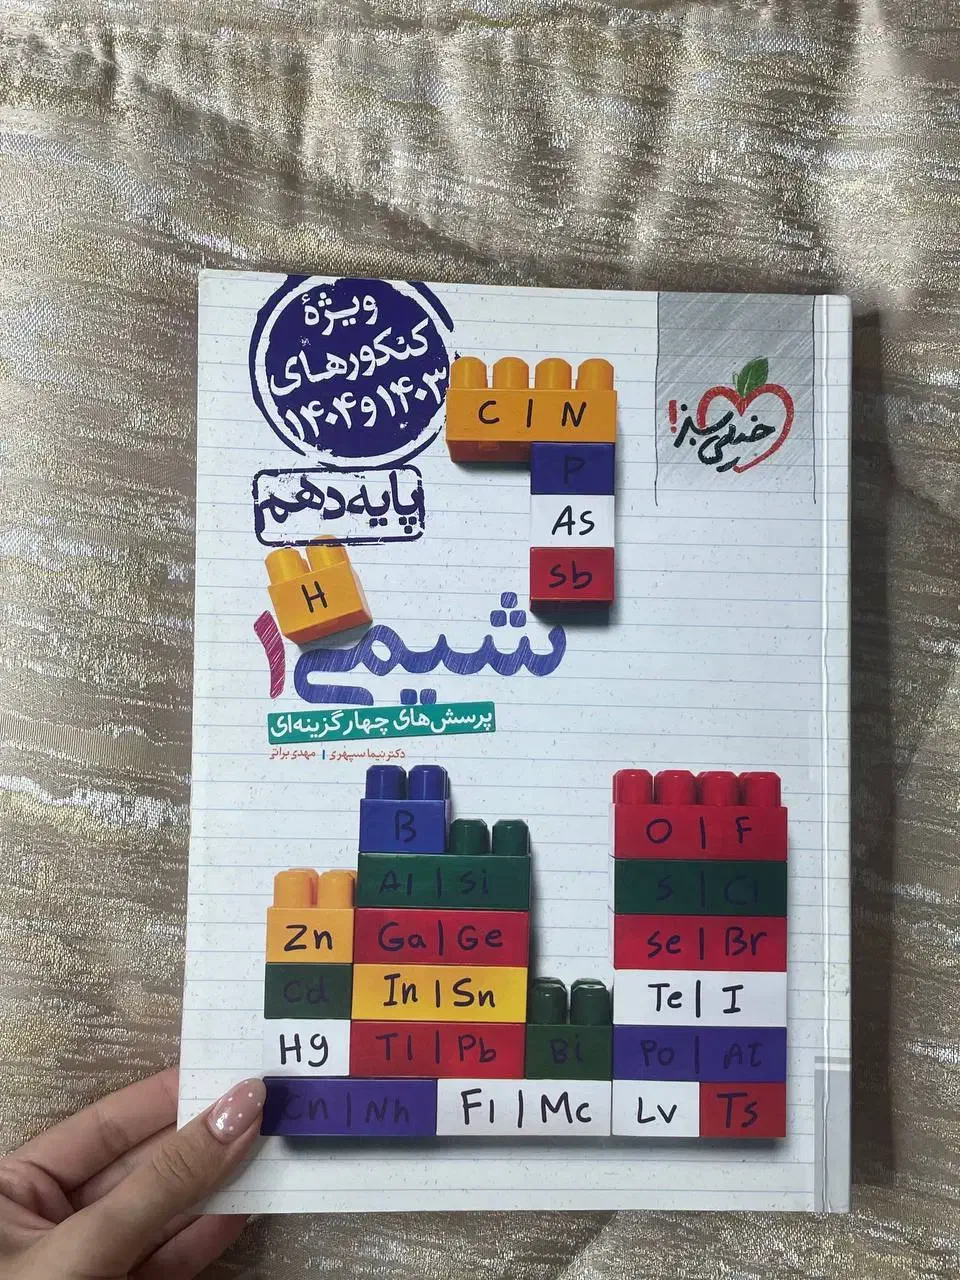 ویژهٔ
کنکورهای
۱۴۰۳ و ۱۴۰۴
خیلی سبز!
پایه دهم
C | N
P
As
Sb
H
شیمی ۱
پرسش‌های چهارگزینه‌ای
دکتر نیما سپهری | مهدی براتی
B
Al | Si
Zn
Ga | Ge
Cd
In | Sn
Hg
Tl | Pb
Bi
Cn | Nh
Fl | Mc
O | F
S | Cl
Se | Br
Te | I
Po | At
Lv
Ts